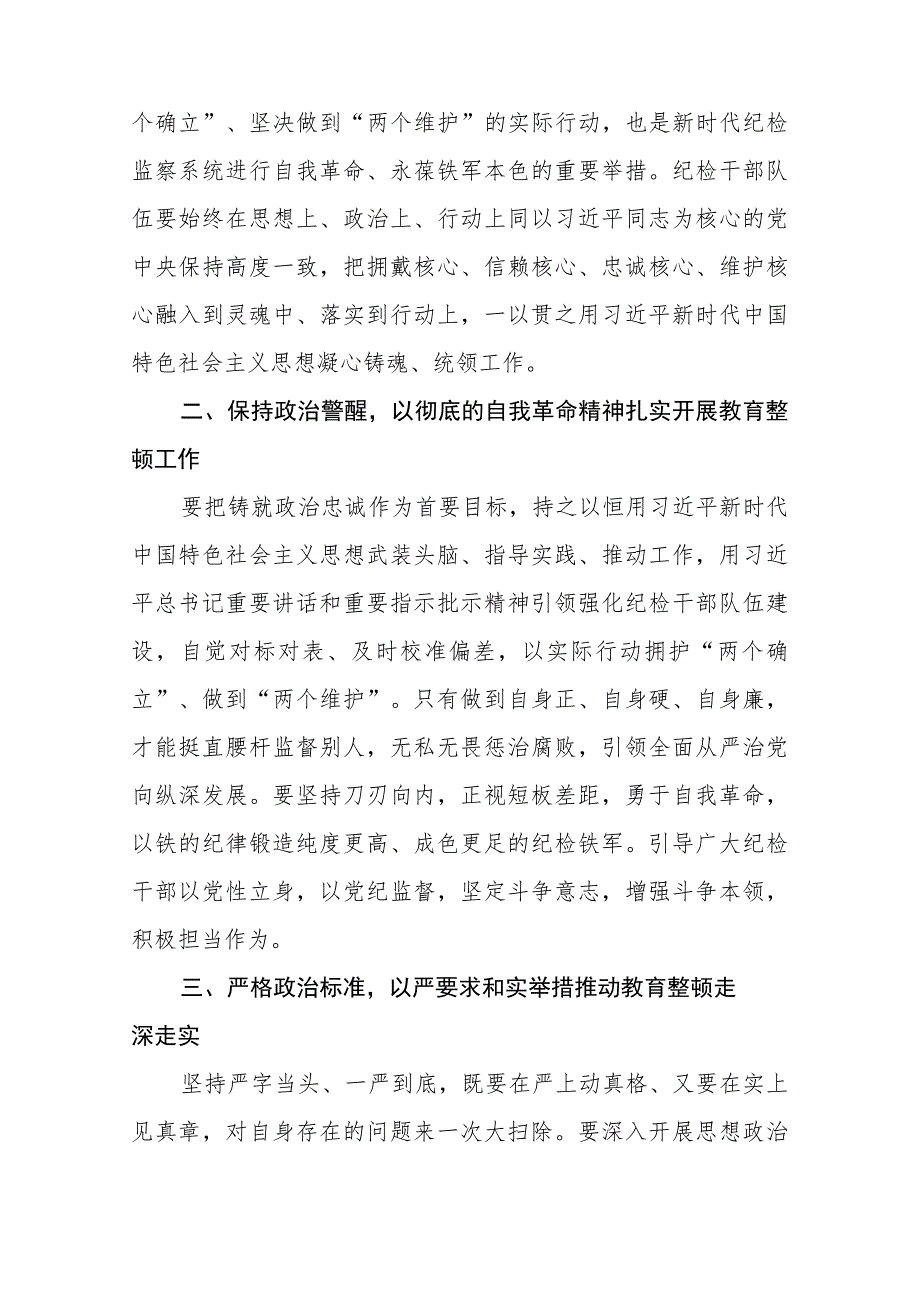 个确立”、坚决做到“两个维护”的实际行动，也是新时代纪检
监察系统进行自我革命、永葆铁军本色的重要举措。纪检干部队
伍要始终在思想上、政治上、行动上同以习近平同志为核心的党
中央保持高度一致，把拥戴核心、信赖核心、忠诚核心、维护核
心融入到灵魂中、落实到行动上，一以贯之用习近平新时代中国
特色社会主义思想凝心铸魂、统领工作。
二、保持政治警醒，以彻底的自我革命精神扎实开展教育整
顿工作
要把铸就政治忠诚作为首要目标，持之以恒用习近平新时代
中国特色社会主义思想武装头脑、指导实践、推动工作，用习近
平总书记重要讲话和重要指示批示精神引领强化纪检干部队伍建
设，自觉对标对表、及时校准偏差，以实际行动拥护“两个确
立”、做到“两个维护”。只有做到自身正、自身硬、自身廉，
才能挺直腰杆监督别人，无私无畏惩治腐败，引领全面从严治党
向纵深发展。要坚持刀刃向内，正视短板差距，勇于自我革命，
以铁的纪律锻造纯度更高、成色更足的纪检铁军。引导广大纪检
干部以党性立身，以党纪监督，坚定斗争意志，增强斗争本领，
积极担当作为。
三、严格政治标准，以严要求和实举措推动教育整顿走
深走实
坚持严字当头、一严到底，既要在严上动真格、又要在实上
见真章，对自身存在的问题来一次大扫除。要深入开展思想政治